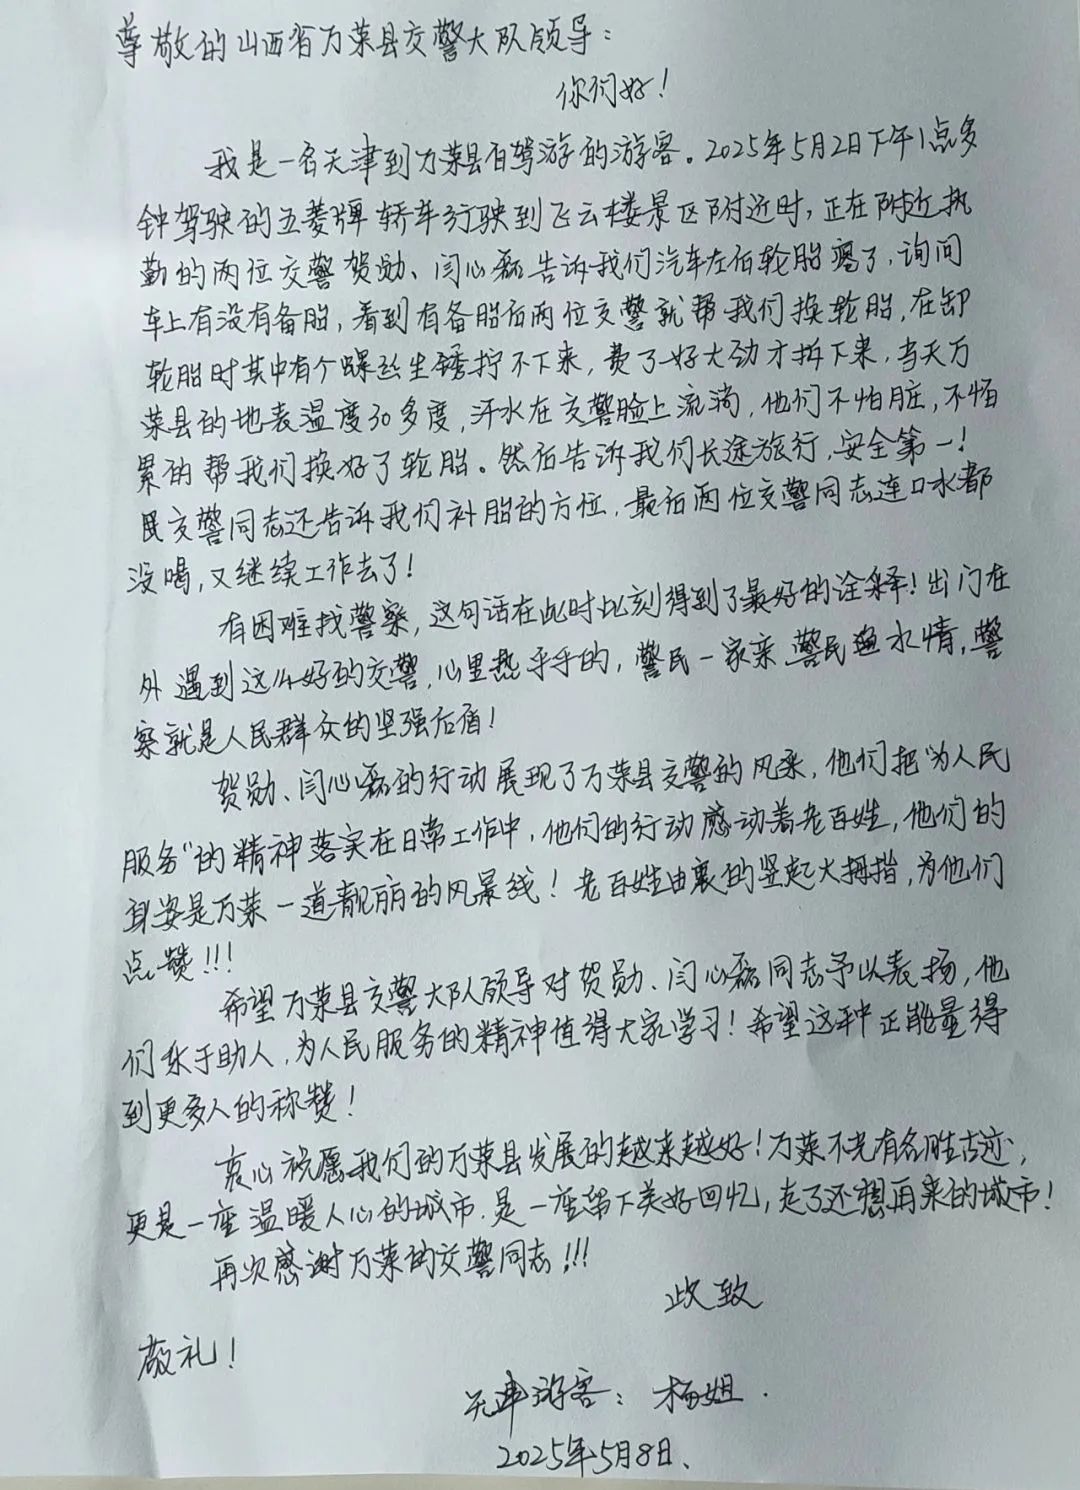 尊敬的山西省万荣县交警大队领导：
你们好！
我是一名天津到万荣县自驾游的游客。2025年5月2日下午1点多
钟驾驶的五菱牌轿车行驶到飞云楼景区附近时，正在附近执
勤的两位交警贺勋、闫心磊告诉我们汽车左后轮胎瘪了，询问
车上有没有备胎，看到有备胎后两位交警就帮我们换轮胎，在卸
轮胎时其中有个螺丝生锈拧不下来，费了好大劲才拆下来，当天万
荣县的地表温度30多度，汗水在交警脸上流淌，他们不怕脏，不怕
累的帮我们换好了轮胎。然后告诉我们长途旅行，安全第一！
民交警同志还告诉我们补胎的方位，最后两位交警同志连口水都
没喝，又继续工作去了！
有困难找警察，这句话在此时此刻得到了最好的诠释！出门在
外遇到这么好的交警，心里热乎乎的，警民一家亲警民鱼水情，警
察就是人民群众的坚强后盾！
贺勋、闫心磊的行动展现了万荣县交警的风采，他们把“为人民
服务”的精神落实在日常工作中，他们的行动感动着老百姓，他们的
身姿是万荣一道靓丽的风景线！老百姓由衷的竖起大拇指，为他们
点赞！！！
希望万荣县交警大队领导对贺勋、闫心磊同志予以表扬，他
们乐于助人，为人民服务的精神值得大家学习！希望这种正能量得
到更多人的称赞！
衷心祝愿我们的万荣县发展的越来越好！万荣不光有名胜古迹，
更是一座温暖人心的城市，是一座留下美好回忆，走了还想再来的城市！
再次感谢万荣的交警同志！！！
此致
敬礼！
天津游客：杨姐．
2025年5月8日、